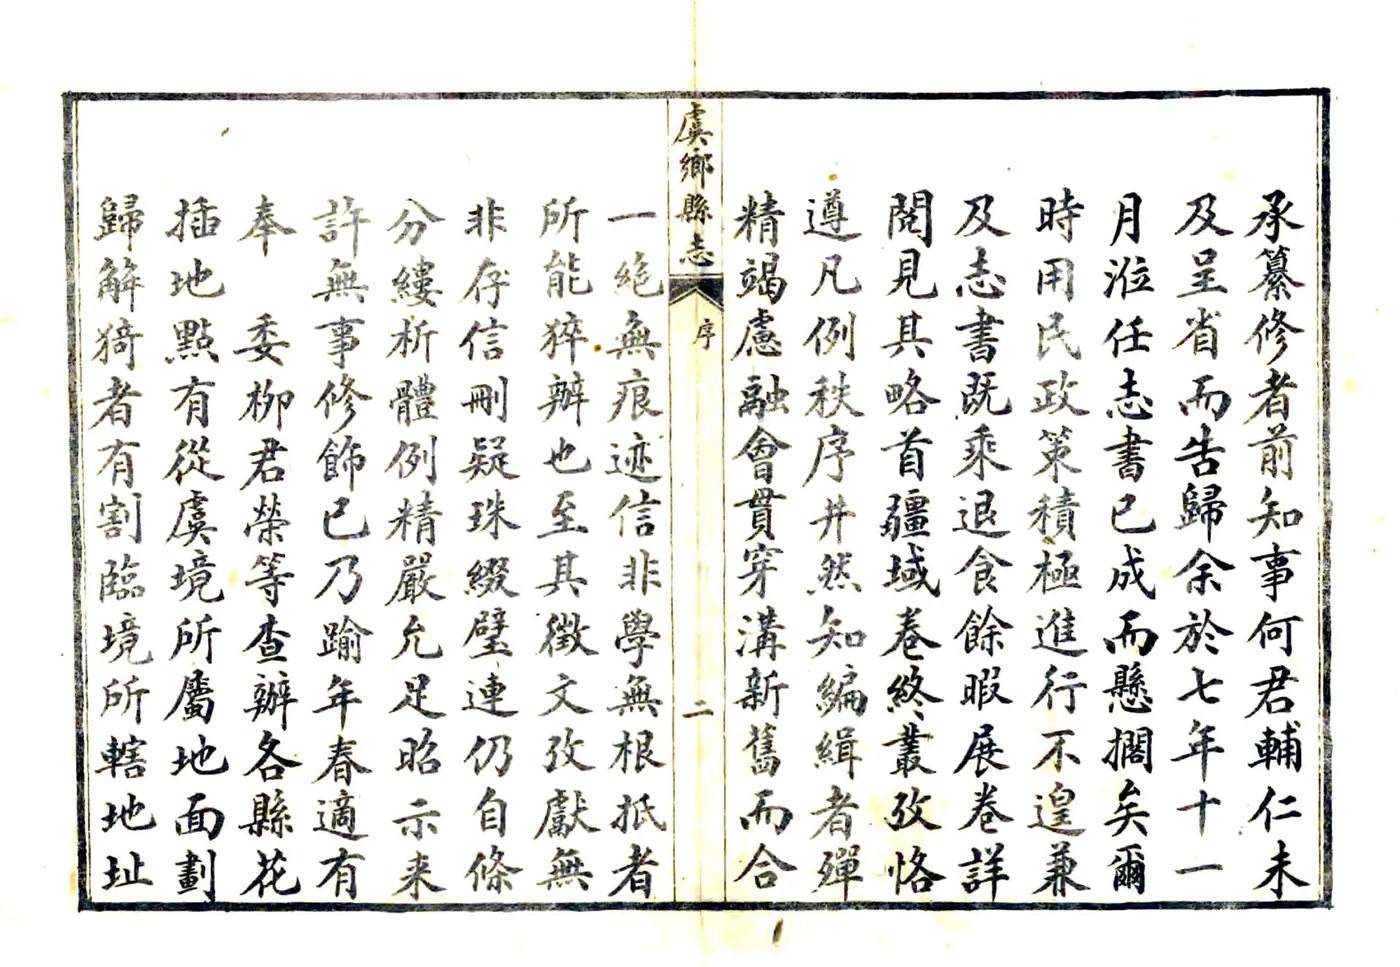 承纂修者前知事何君輔仁未
及呈省而告歸余於七年十一
月涖任志書已成而懸擱矣爾
時用民政策積極進行不遑兼
及志書既乘退食餘暇展卷詳
閱見其略首疆域卷終叢攷恪
遵凡例秩序井然知編緝者殫
精竭慮融會貫穿溝新舊而合
虞鄉縣志
序
二
一絶無痕迹信非學無根抵者
所能猝辦也至其徵文攷獻無
非存信刪疑珠綴璧連仍自條
分縷析體例精嚴允足昭示来
許無事修飾已乃踰年春適有
奉　委柳君榮等查辦各縣花
插地點有從虞境所屬地面劃
歸解猗者有割臨境所轄地址